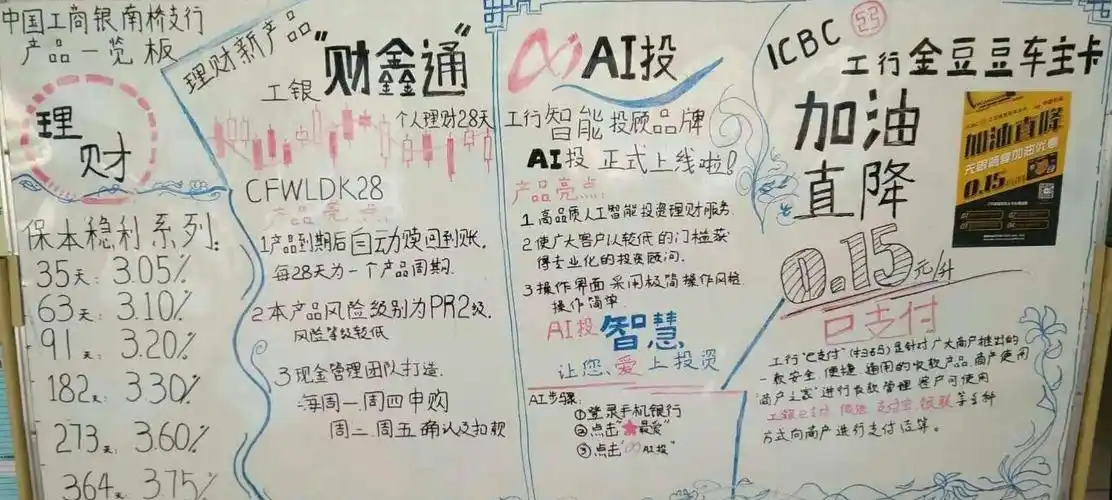 中国工商银南桥支行
产品一览板
理
财
保本稳利系列:
35天: 3.05%
63天: 3.10%
91天: 3.20%
182天: 3.30%
273天: 3.60%
364天 3.75%
理财新产品
工银"财鑫通"
个人理财28天
CFWLDK28
产品亮点
1产品到期后自动赎回到账.
每28天为一个产品周期.
2.本产品风险级别为PR2级.
风险等级较低
3现金管理团队打造.
每周一.周四申购
周二.周五确认及扣款
AI投
工行智能投顾品牌
AI投 正式上线啦!
产品亮点:
1.高品质人工智能投资理财服务.
2使广大客户以较低的门槛获
得专业化的投资顾问.
3操作界面采用极简操作风格
操作简单
AI投智慧
让您、爱上投资
AI步骤:
①登录手机银行
②点击"★最爱"
③点击"AI投"
ICBC
工行金豆豆车主卡
加油
直降
0.15元/升
加油直降
0.15
口支付
工行"e支付"是针对广大商户推出的
一款安全 便捷 通用的收款产品.商户使用
"商户之家"进行收款管理 客户可使用
工银e支付 微信 支付宝 银联等多种
方式向商户进行支付结算。